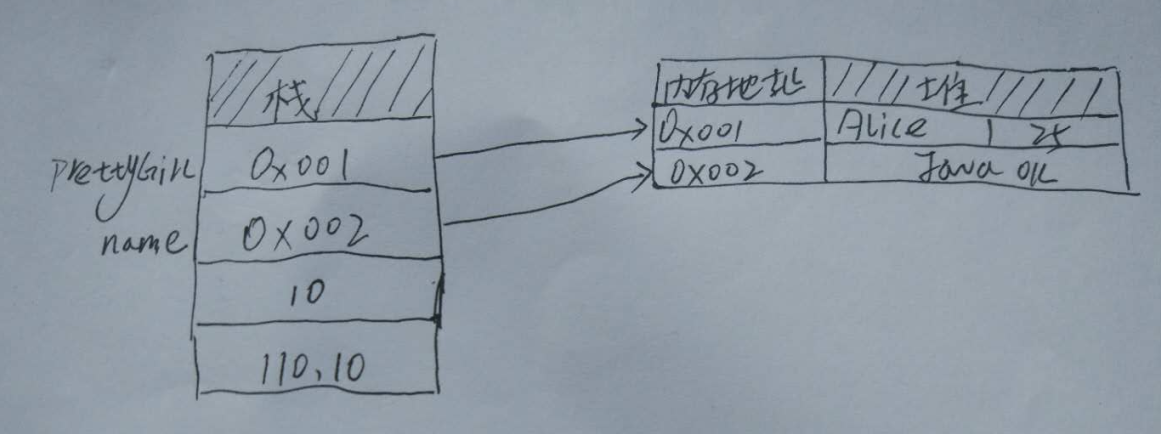 栈
prettyGirl 0x001
name 0x002
10
110.10
内存地址 堆
0x001 Alice 1 25
0x002 Java OK